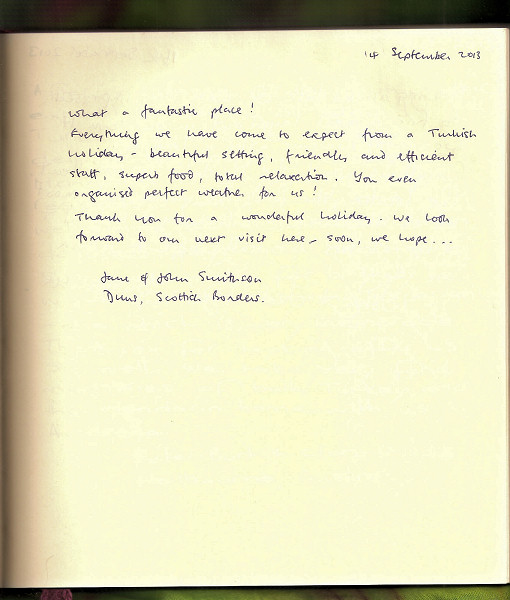 14 September 2013
What a fantastic place!
Everything we have come to expect from a Turkish
holiday - beautiful setting, friendly and efficient
staff, superb food, total relaxation. You even
organised perfect weather for us!
Thank you for a wonderful holiday. We look
forward to our next visit here, soon, we hope...
Jane & John Smithson
Duns, Scottish Borders.